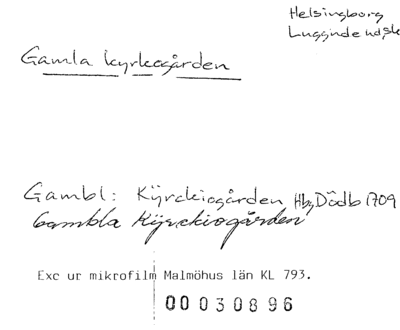 Helsingborg
Luggude hd, Sk
Gamla kyrkogården
Gambl: Kÿrckiogården Hbg Dödb 1709
Gambla Kÿrckiogården
Exc ur mikrofilm Malmöhus län KL 793.
00030896